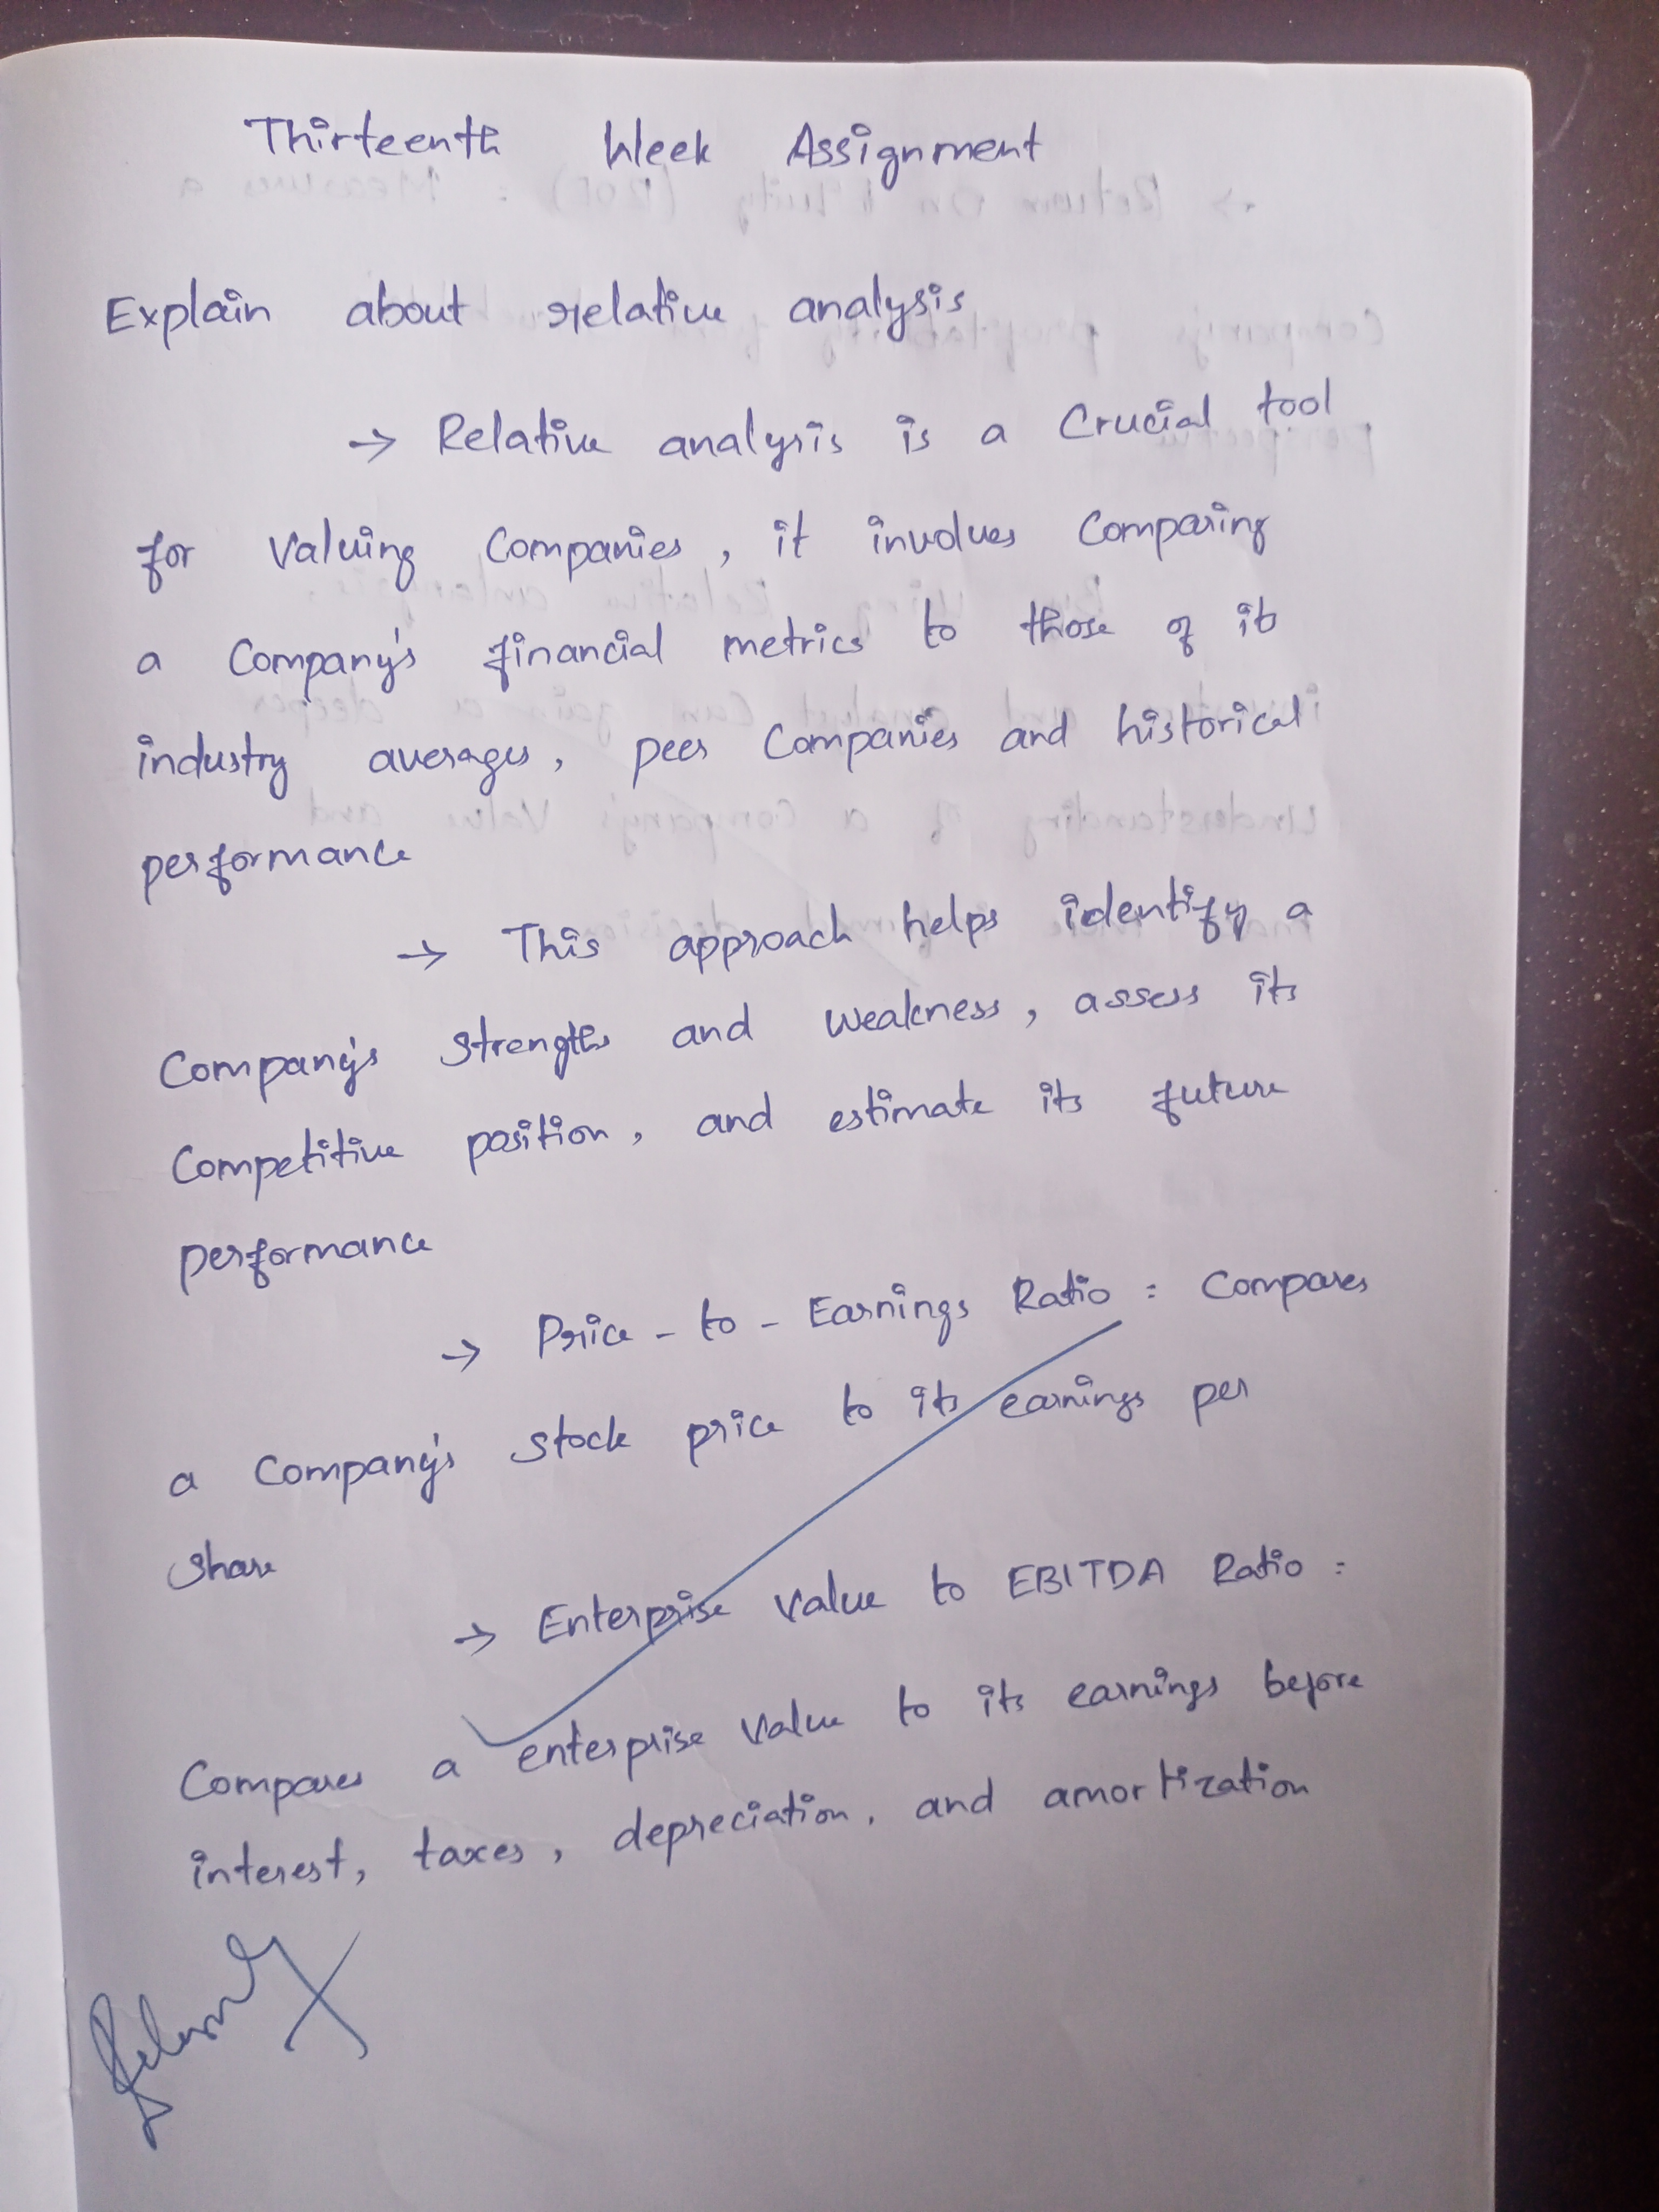 Thirteenth Week Assignment
Explain about relative analysis
→ Relative analysis is a Crucial tool
for Valuing Companies, it involves Comparing
a Company's financial metrics to those of its
industry averages, peer Companies and historical
performance
→ This approach helps identify a
Company's strengths and weakness, assess its
Competitive position, and estimate its future
performance
→ Price-to-Earnings Ratio: Compares
a Company's stock price to its earnings per
share
→ Enterprise Value to EBITDA Ratio:
Compares a enterprise value to its earnings before
interest, taxes, depreciation, and amortization